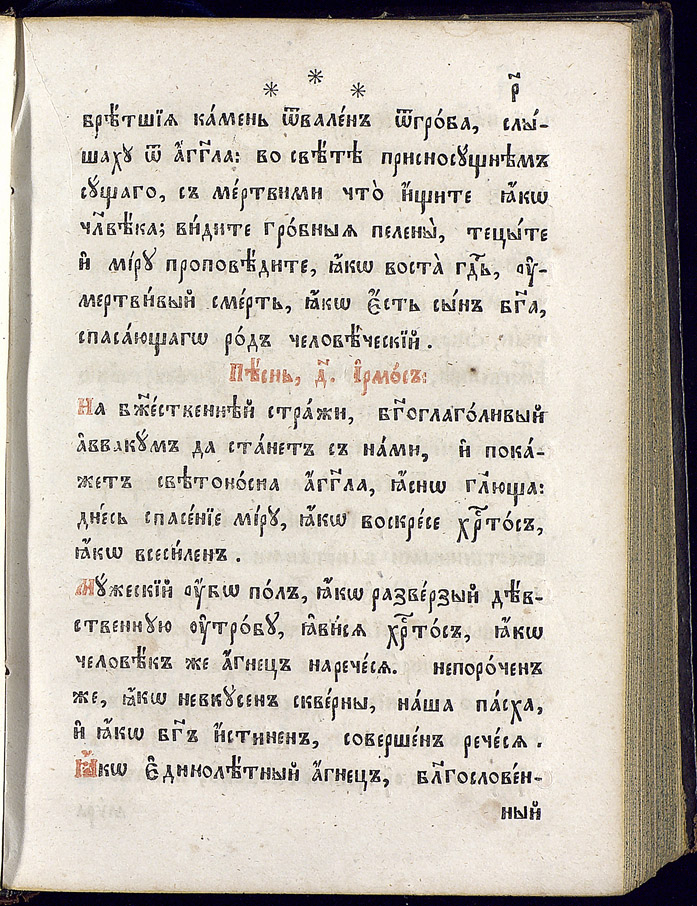 р҃
брѣ́тшїѧ ка́мень ѿвале́нъ ѿгро́ба, слы́-
шахꙋ ѿ а҆́гг҃ла: во свѣ́тѣ присносꙋщнѣмъ
сꙋщаго, съ ме́ртвими что̀ и҆́щите ꙗ҆́кѡ
чл҃вѣка; ви́дите гро́бныѧ пелены̀, тецы́те
и҆ мі́рꙋ проповѣ́дите, ꙗ҆́кѡ воста̀ гдⷭ҇ь, ᲂу҆-
мертви́вый сме́рть, ꙗ҆́кѡ є҆́сть сы́нъ бг҃а,
спаса́ющагѡ ро́дъ человѣ́ческїй.
Пѣ́снь, д҃. І҆рмо́съ:
На бж҃е́ственнѣй стра́жи, бг҃оглаго́ливый
а҆ввакꙋмъ да ста́нетъ съ на́ми, и҆ пока́-
жетъ свѣтоно́сна а҆́гг҃ла, ꙗ҆́снѡ гл҃юща:
дне́сь спасе́нїе мі́рꙋ, ꙗ҆́кѡ воскре́се хрⷭ҇то́съ,
ꙗ҆́кѡ всеси́ленъ.
Мꙋжескїй ᲂу҆́бѡ по́лъ, ꙗ҆́кѡ разве́рзый дѣ́в-
ственнꙋю ᲂу҆тро́бꙋ, ꙗ҆ви́сѧ хрⷭ҇то́съ, ꙗ҆́кѡ
человѣ́къ же а҆́гнецъ нарече́сѧ. непоро́ченъ
же, ꙗ҆́кѡ невкꙋсенъ скве́рны, на́ша па́сха,
и҆ ꙗ҆́кѡ бг҃ъ и҆́стиненъ, соверше́нъ рече́сѧ.
Ꙗ҆́кѡ є҆динолѣ́тный а҆́гнецъ, бл҃гослове́н-
ный